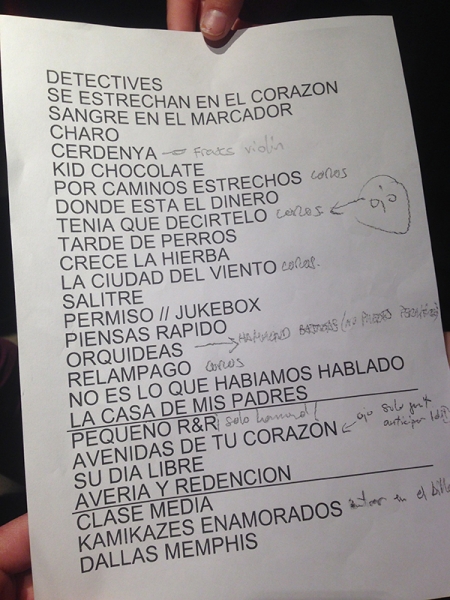 DETECTIVES
SE ESTRECHAN EN EL CORAZON
SANGRE EN EL MARCADOR
CHARO
CERDENYA violin
KID CHOCOLATE
POR CAMINOS ESTRECHOS coros
DONDE ESTA EL DINERO
TENIA QUE DECIRTELO coros
TARDE DE PERROS
CRECE LA HIERBA
LA CIUDAD DEL VIENTO coros.
SALITRE
PERMISO // JUKEBOX
PIENSAS RAPIDO
ORQUIDEAS HAMMOND
RELAMPAGO coros
NO ES LO QUE HABIAMOS HABLADO
LA CASA DE MIS PADRES
PEQUEÑO R&R ¡solo hammond!
AVENIDAS DE TU CORAZON ojo solo
SU DIA LIBRE
AVERIA Y REDENCION
CLASE MEDIA
KAMIKAZES ENAMORADOS en el
DALLAS MEMPHIS